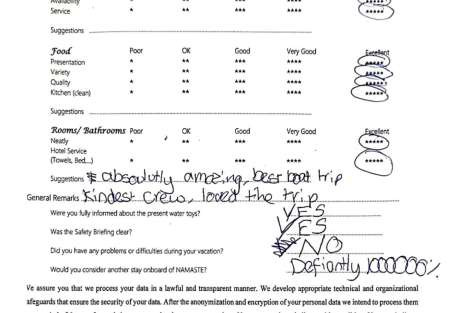 Availability
Service * ** *** **** *****
Suggestions
Food Poor OK Good Very Good Excellent
Presentation * ** *** **** *****
Variety * ** *** **** *****
Quality * ** *** **** *****
Kitchen (clean) * ** *** **** *****
Suggestions
Rooms/Bathrooms Poor OK Good Very Good Excellent
Neatly * ** *** **** *****
Hotel Service
(Towels, Bed,...) * ** *** **** *****
Suggestions absolutly amazing, best boat trip
General Remarks Kindest crew, loved the trip
Were you fully informed about the present water toys? YES
Was the Safety Briefing clear? YES
Did you have any problems or difficulties during your vacation? NO
Would you consider another stay onboard of NAMASTE? Defiantly 1000000%
We assure you that we process your data in a lawful and transparent manner. We develop appropriate technical and organizational
safeguards that ensure the security of your data. After the anonymization and encryption of your personal data we intend to process them